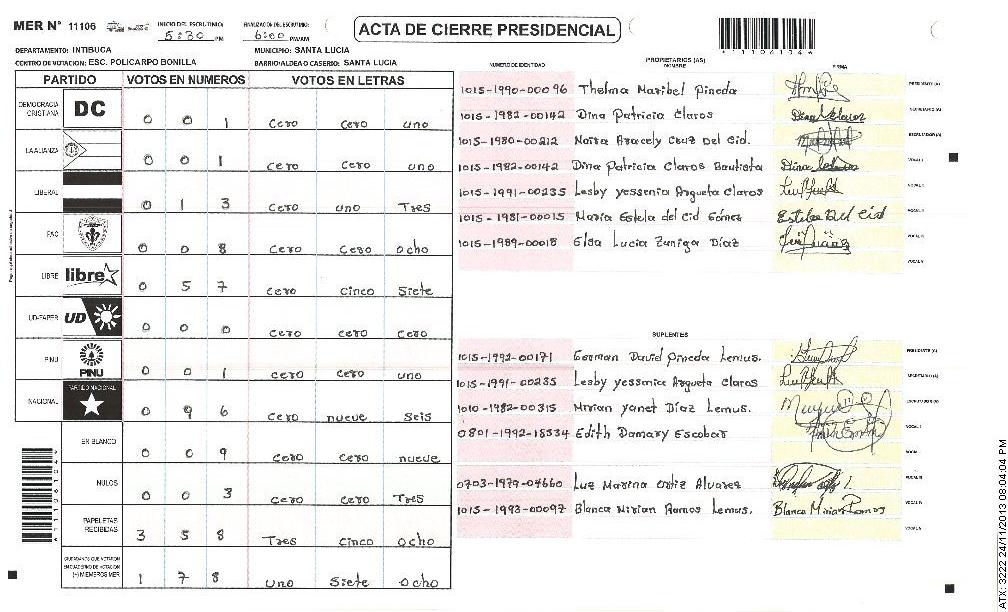 MER Nº 11106
INICIO DEL ESCRUTINIO: 5:30 PM
FINALIZACION DEL ESCRUTINIO: 6:00 PM/AM
ACTA DE CIERRE PRESIDENCIAL
DEPARTAMENTO: INTIBUCA
MUNICIPIO: SANTA LUCIA
CENTRO DE VOTACION: ESC. POLICARPO BONILLA
BARRIO/ALDEA O CASERIO: SANTA LUCIA
PARTIDO VOTOS EN NUMEROS VOTOS EN LETRAS
DEMOCRACIA CRISTIANA DC 0 0 1 cero cero uno
LA ALIANZA 0 0 1 cero cero uno
LIBERAL 0 1 3 cero uno Tres
PAC 0 0 8 cero cero ocho
LIBRE libre 0 5 7 cero cinco siete
UD-FAPER UD 0 0 0 cero cero cero
PINU PINU 0 0 1 cero cero uno
NACIONAL PARTIDO NACIONAL 0 9 6 cero nueve seis
EN BLANCO 0 0 9 cero cero nueve
NULOS 0 0 3 cero cero Tres
PAPELETAS RECIBIDAS 3 5 8 Tres cinco ocho
CIUDADANOS QUE VOTARON EN CUADERNO DE VOTACION (+) MIEMBROS MER 1 7 8 uno siete ocho
PROPIETARIOS (AS)
NUMERO DE IDENTIDAD NOMBRE FIRMA
1015-1990-00096 Thelma Maribel Pineda PRESIDENTE (A)
1015-1982-00142 Dina Patricia Claros SECRETARIO (A)
1015-1980-00212 Noira Aracely Cruz Del Cid. ESCRUTADOR (A)
1015-1982-00142 Dina Patricia Claros Bautista VOCAL I
1015-1991-00235 Lesby yessenia Argueta Claros VOCAL II
1015-1981-00015 Maria Estela del Cid Gómez Estela Del Cid VOCAL III
1015-1989-00018 Elsa Lucia Zuniga Díaz VOCAL IV
VOCAL V
SUPLENTES
1015-1992-00171 German David Pineda Lemus. PRESIDENTE (A)
1015-1991-00235 Lesby yessenia Argueta Claros SECRETARIO (A)
1010-1982-00315 Mirian yanet Díaz Lemus. ESCRUTADOR (A)
0801-1992-18534 Edith Damary Escobar VOCAL I
VOCAL II
0703-1979-04660 Luz Marina Ortiz Alvarez VOCAL III
1015-1993-00097 Blanca Mirian Ramos Lemus. Blanca Mirian Ramos VOCAL IV
VOCAL V
ATX: 3222 24/11/2013 08:04:04 PM